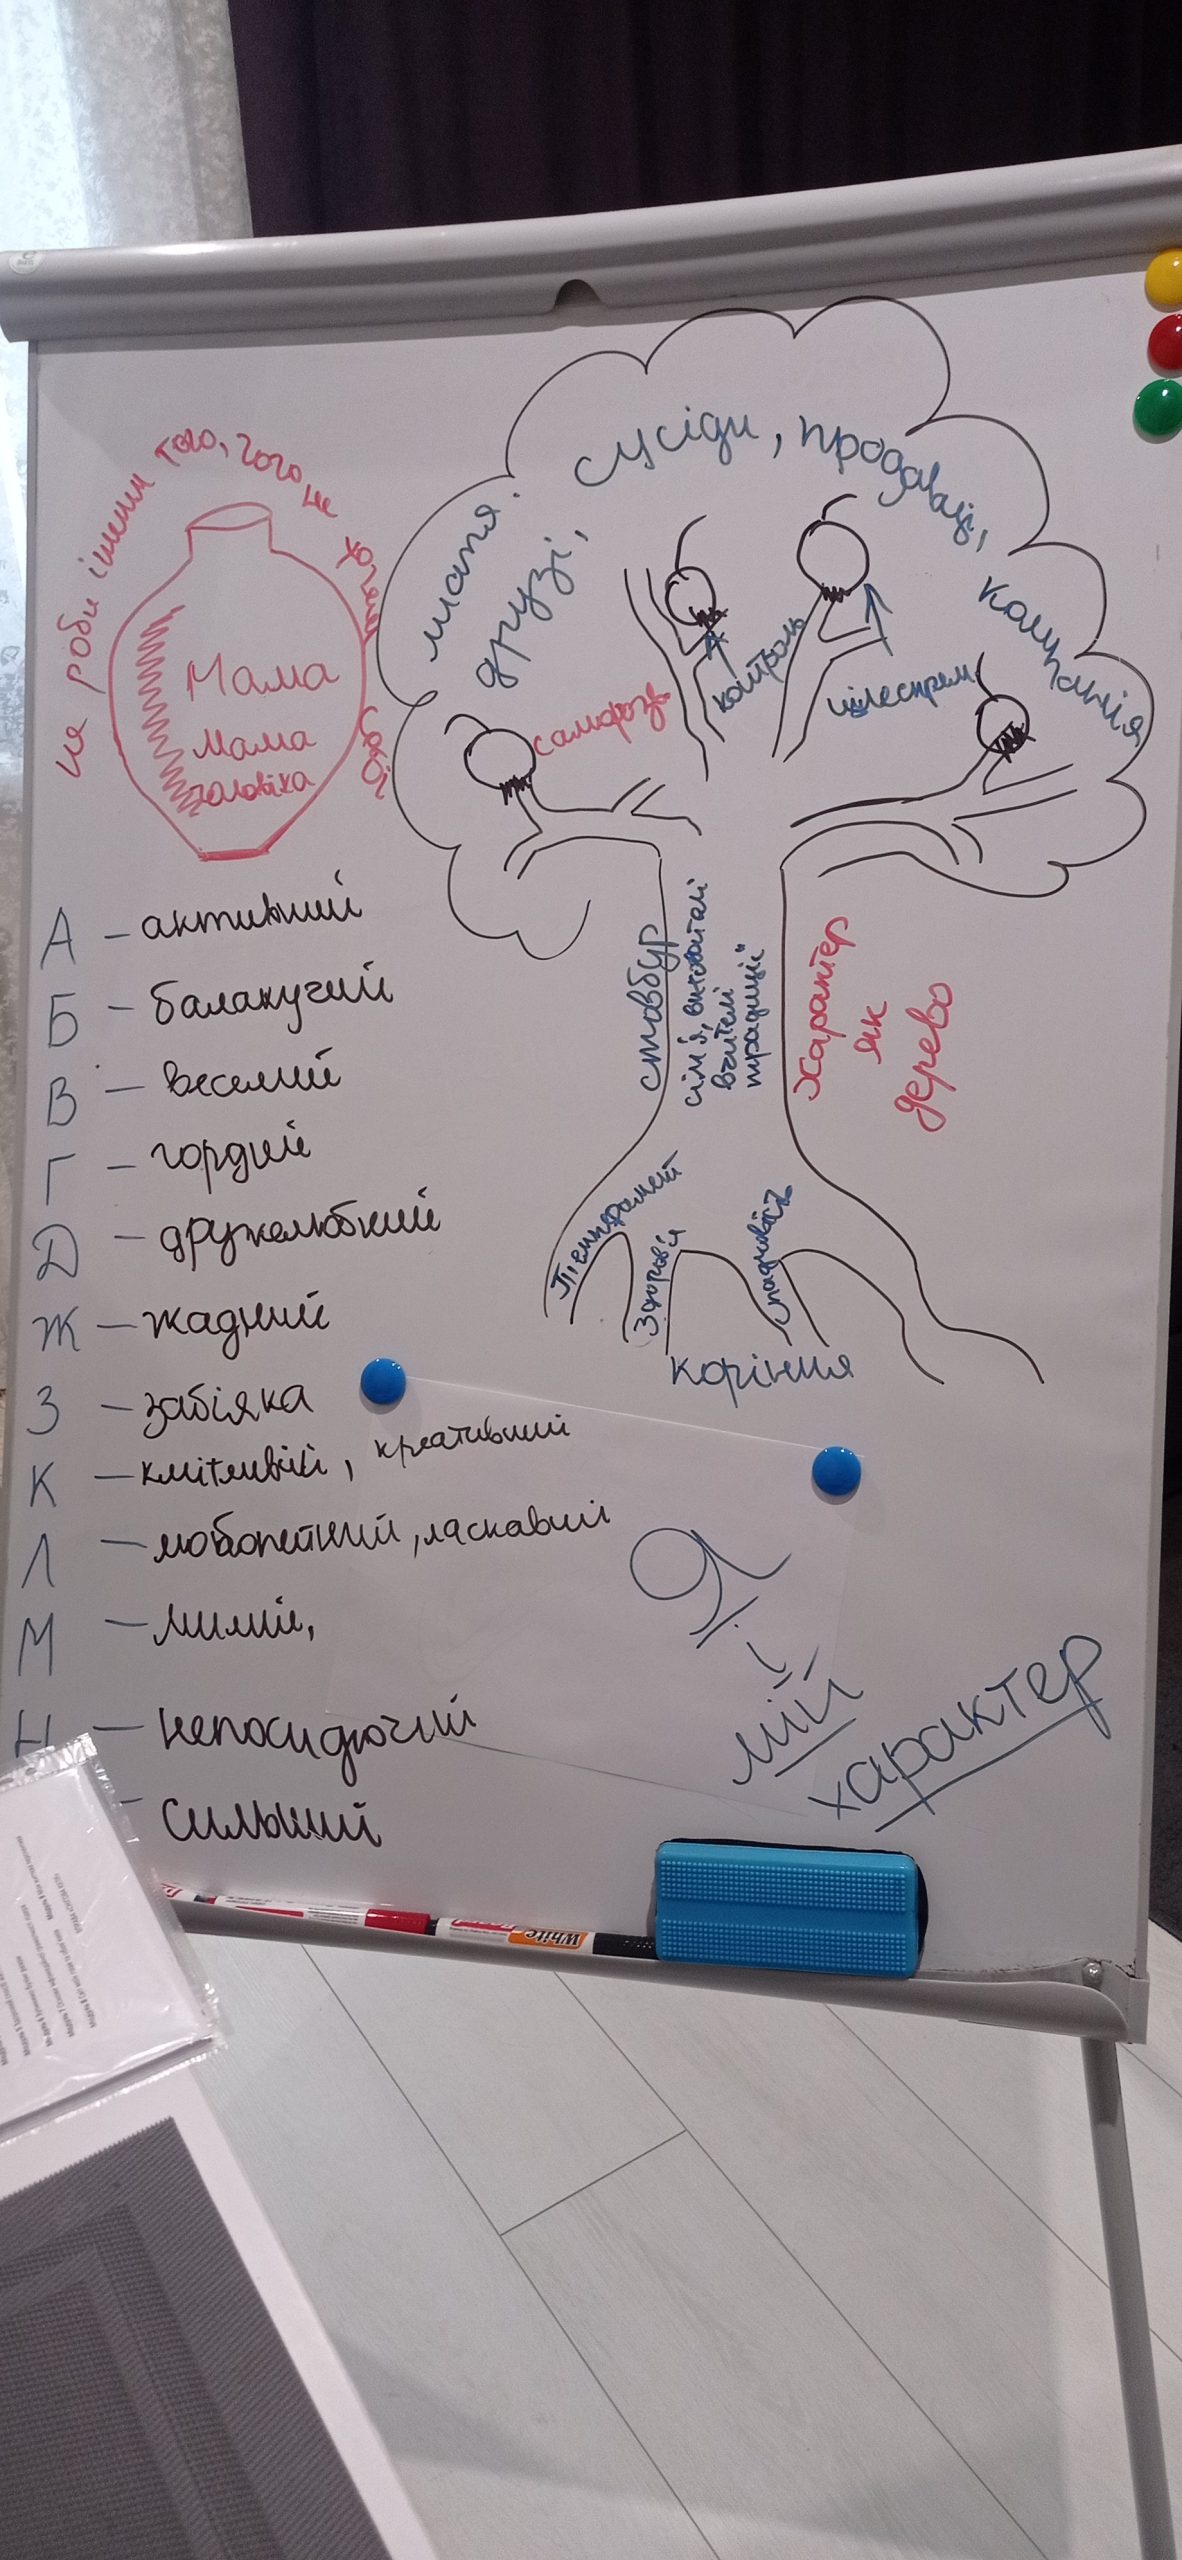 не роби іншим того, чого не хочеш собі
Мама
Мама
чоловіка
сусіди, продавці, компанія
друзі,
саморозв
контроль
цілеспрям.
стовбур
сім'я, вихователі
вчителі
традиції"
Характер
як
дерево
Темперамент
Здоров'я
спадковість
коріння
А – активний
Б – балакучий
В – веселий
Г – гордий
Д – дружелюбний
Ж – жадний
З – забіяка
К – кмітливий, креативний
Л – любопитний, ласкавий
М – милий,
Н – непосидючий
– сильний
Я і
мій
характер
White